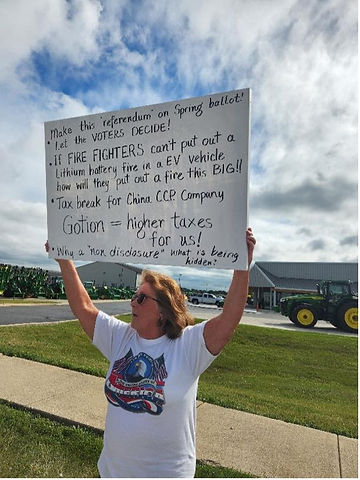 • Make this "referendum" on Spring ballot!
Let the VOTERS DECIDE!
• IF FIRE FIGHTERS can't put out a
Lithium battery fire in a EV vehicle
how will they put out a fire this BIG!!
• Tax break for China CCP Company
Gotion = higher taxes
for us!
• Why a "non disclosure" what is being
hidden?